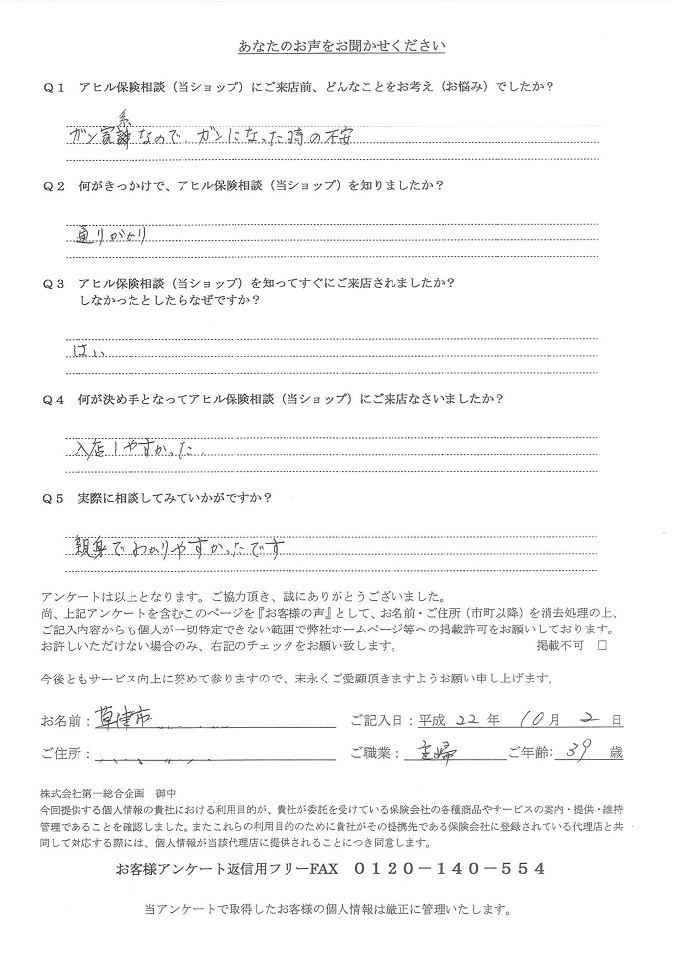 あなたのお声をお聞かせください
Q1 アヒル保険相談（当ショップ）にご来店前、どんなことをお考え（お悩み）でしたか？
ガン家系なので、ガンになった時の不安
Q2 何がきっかけで、アヒル保険相談（当ショップ）を知りましたか？
通りがかり
Q3 アヒル保険相談（当ショップ）を知ってすぐにご来店されましたか？
しなかったとしたらなぜですか？
はい
Q4 何が決め手となってアヒル保険相談（当ショップ）にご来店なさいましたか？
入店しやすかった.
Q5 実際に相談してみていかがですか？
親身でわかりやすかったです
アンケートは以上となります。ご協力頂き、誠にありがとうございました。
尚、上記アンケートを含むこのページを『お客様の声』として、お名前・ご住所（市町以降）を消去処理の上、
ご記入内容からも個人が一切特定できない範囲で弊社ホームページ等への掲載許可をお願いしております。
お許しいただけない場合のみ、右記のチェックをお願い致します。 掲載不可 □
今後ともサービス向上に努めて参りますので、末永くご愛顧頂きますようお願い申し上げます。
お名前： 草津市 ご記入日：平成 22 年 10 月 2 日
ご住所： ご職業： 主婦 ご年齢: 39 歳
株式会社第一総合企画 御中
今回提供する個人情報の貴社における利用目的が、貴社が委託を受けている保険会社の各種商品やサービスの案内・提供・維持
管理であることを確認しました。またこれらの利用目的のために貴社がその提携先である保険会社に登録されている代理店と共
同して対応する際には、個人情報が当該代理店に提供されることにつき同意します。
お客様アンケート返信用フリーFAX 0120－140－554
当アンケートで取得したお客様の個人情報は厳正に管理いたします。